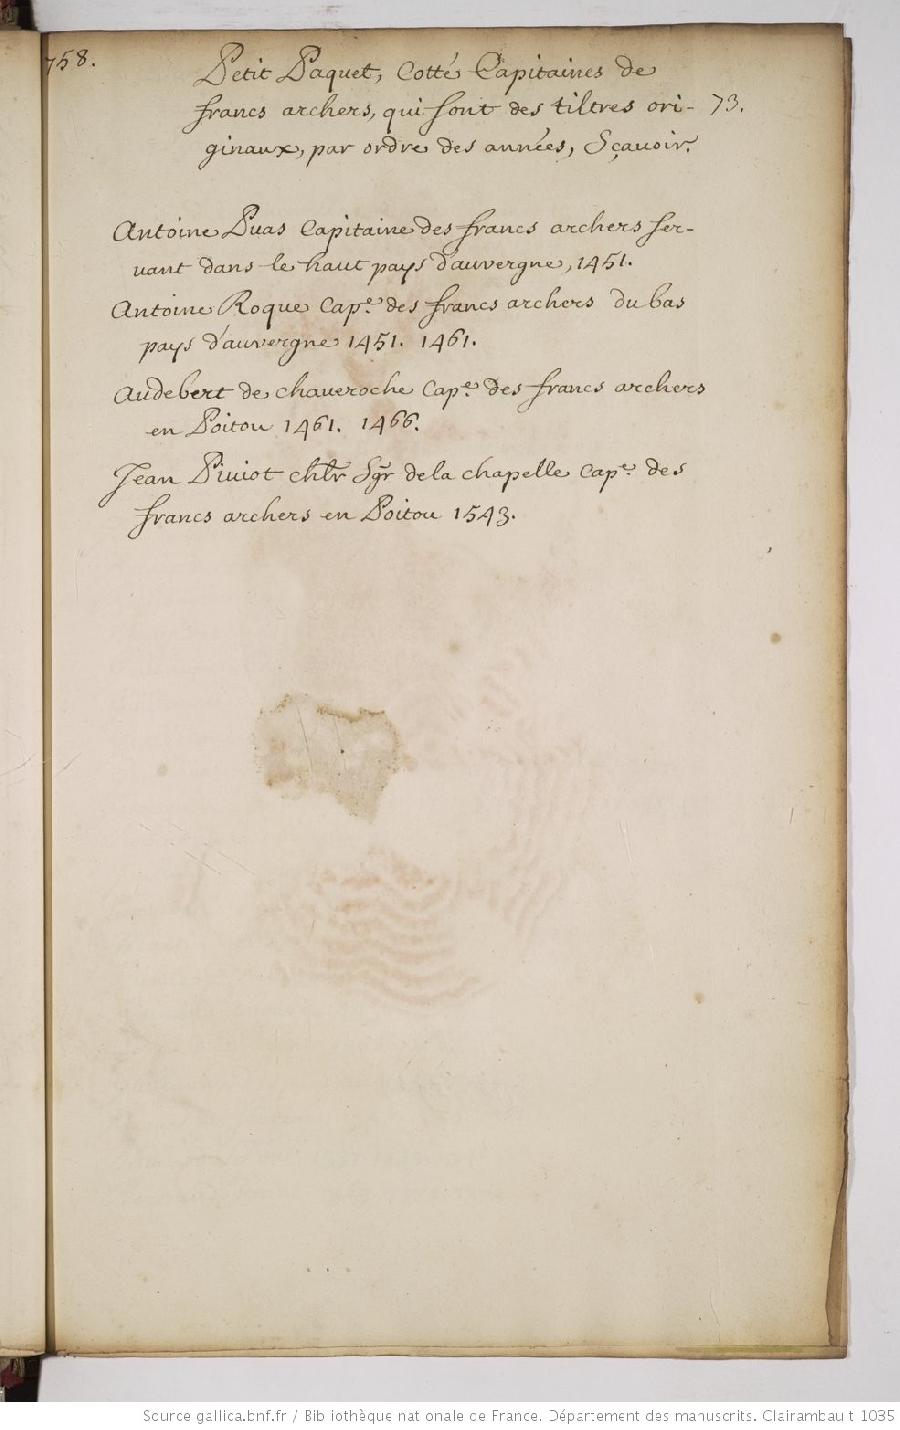 758.
Petit Paquet, Cotté Capitaines de
francs archers, qui sont des tiltres ori-
73.
ginaux, par ordre des années, Sçavoir.
Antoine Puas Capitaine des francs archers ser-
vant dans le haut pays d'auvergne, 1451.
Antoine Roque Cap.e des francs archers du bas
pays d'auvergne 1451. 1461.
Audebert de chaveroche Cap.e des francs archers
en Poitou 1461. 1466.
Jean Piviot chlr Sgr de la chapelle Cap.e des
francs archers en Poitou 1543.
Source gallica.bnf.fr / Bibliothèque nationale de France. Département des manuscrits. Clairambault 1035